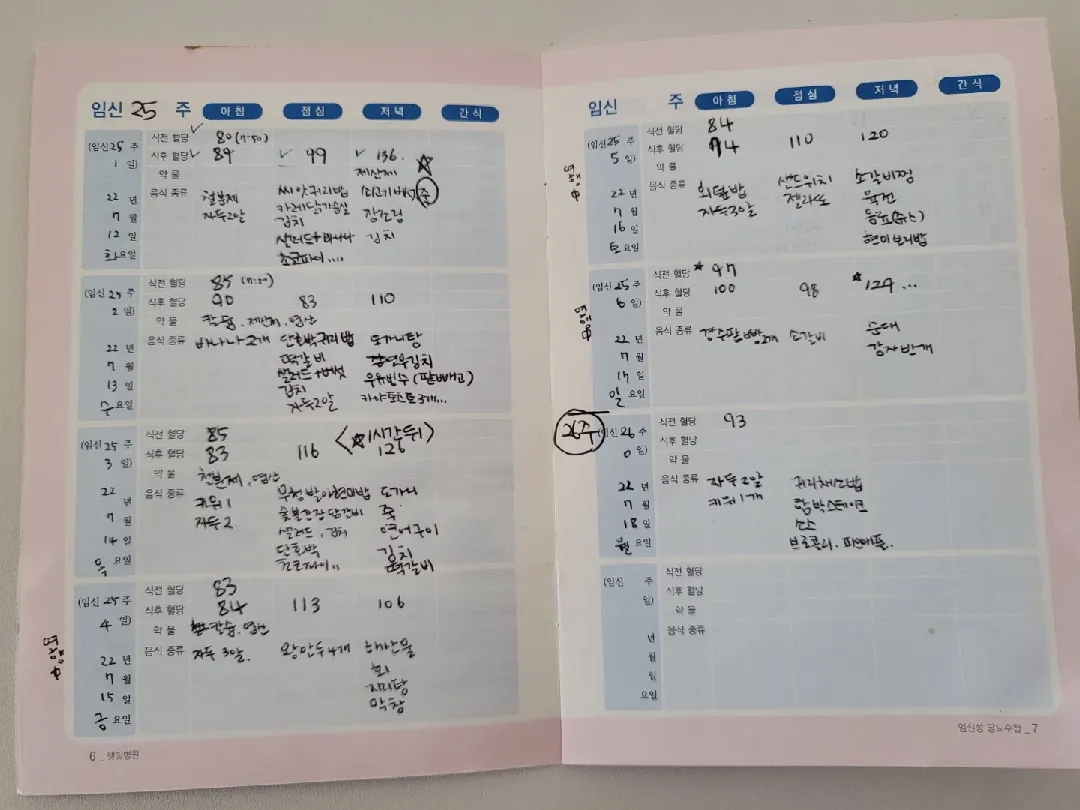 임신 25 주 아침 점심 저녁 간식
(임신 25 주 1 일)
식전 혈당 80 (7:50)
식후 혈당 89 99 136.
약물 제산제
22 년 7 월 12 일 화요일
음식 종류
철분제
자두2알
씨앗귀리밥
카레닭가슴살
김치
샐러드+바나나
초코파이....
죽
김치
(임신 25 주 2 일)
식전 혈당 85 (7:20)
식후 혈당 90 83 110
약물 칼슘, 제산제, 엽산
22 년 7 월 13 일 수요일
음식 종류
바나나 2개
단호박귀리밥
떡갈비
샐러드+버섯
김치
자두2알
도가니탕
우유빙수 (팥빼고)
카야토스트3개...
(임신 25 주 3 일)
식전 혈당 85
식후 혈당 83 116 <★1시간뒤> 126
약물 철분제, 엽산
22 년 7 월 14 일 목요일
음식 종류
키위1
자두2
무청발아현미밥
숯불간장닭갈비
샐러드, 김치
단호박
도가니
죽
연어구이
김치
떡갈비
(임신 25 주 4 일)
식전 혈당 83
식후 혈당 84 113 106
약물 칼슘, 엽산
22 년 7 월 15 일 금요일
음식 종류
자두3알.
왕만두4개
해산물
회
지리탕
막창
6 _ 햇빛병원
임신 주 아침 점심 저녁 간식
(임신 25 주 5 일)
식전 혈당 84
식후 혈당 94 110 120
약물
22 년 7 월 16 일 토요일
음식 종류
회덮밥
자두3알
샌드위치
젤라또
소갈비찜
육전
현미보리밥
(임신 25 주 6 일)
식전 혈당 ★97
식후 혈당 100 98 ★129...
약물
22 년 7 월 17 일 일요일
음식 종류
경주팥빵2개
소갈비
순대
감자반개
26주
(임신 26 주 0 일)
식전 혈당 93
식후 혈당
약물
22 년 7 월 18 일 월요일
음식 종류
자두2알
키위1개
귀리채소밥
함박스테이크
소스
브로콜리, 파인애플.
(임신 주 일)
식전 혈당
식후 혈당
약물
년 월 일 요일
음식 종류
임신성 당뇨수첩 _ 7